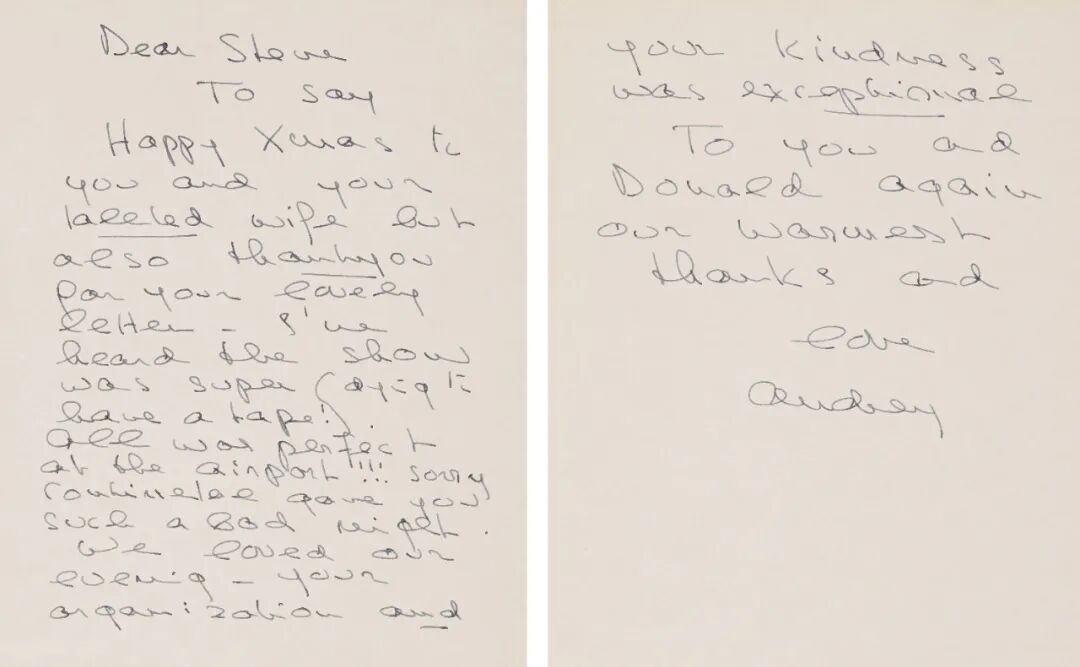 Dear Steve
To say
Happy Xmas to
you and your
wife but
also thankyou
for your lovely
letter - I've
heard the show
was super (dying to
have a tape!).
All was perfect
at the airport!!! sorry
gave you
such a bad night.
We loved our
evening - your
organization and
your kindness
was exceptional
To you and
Donald again
our warmest
thanks and
love
Audrey